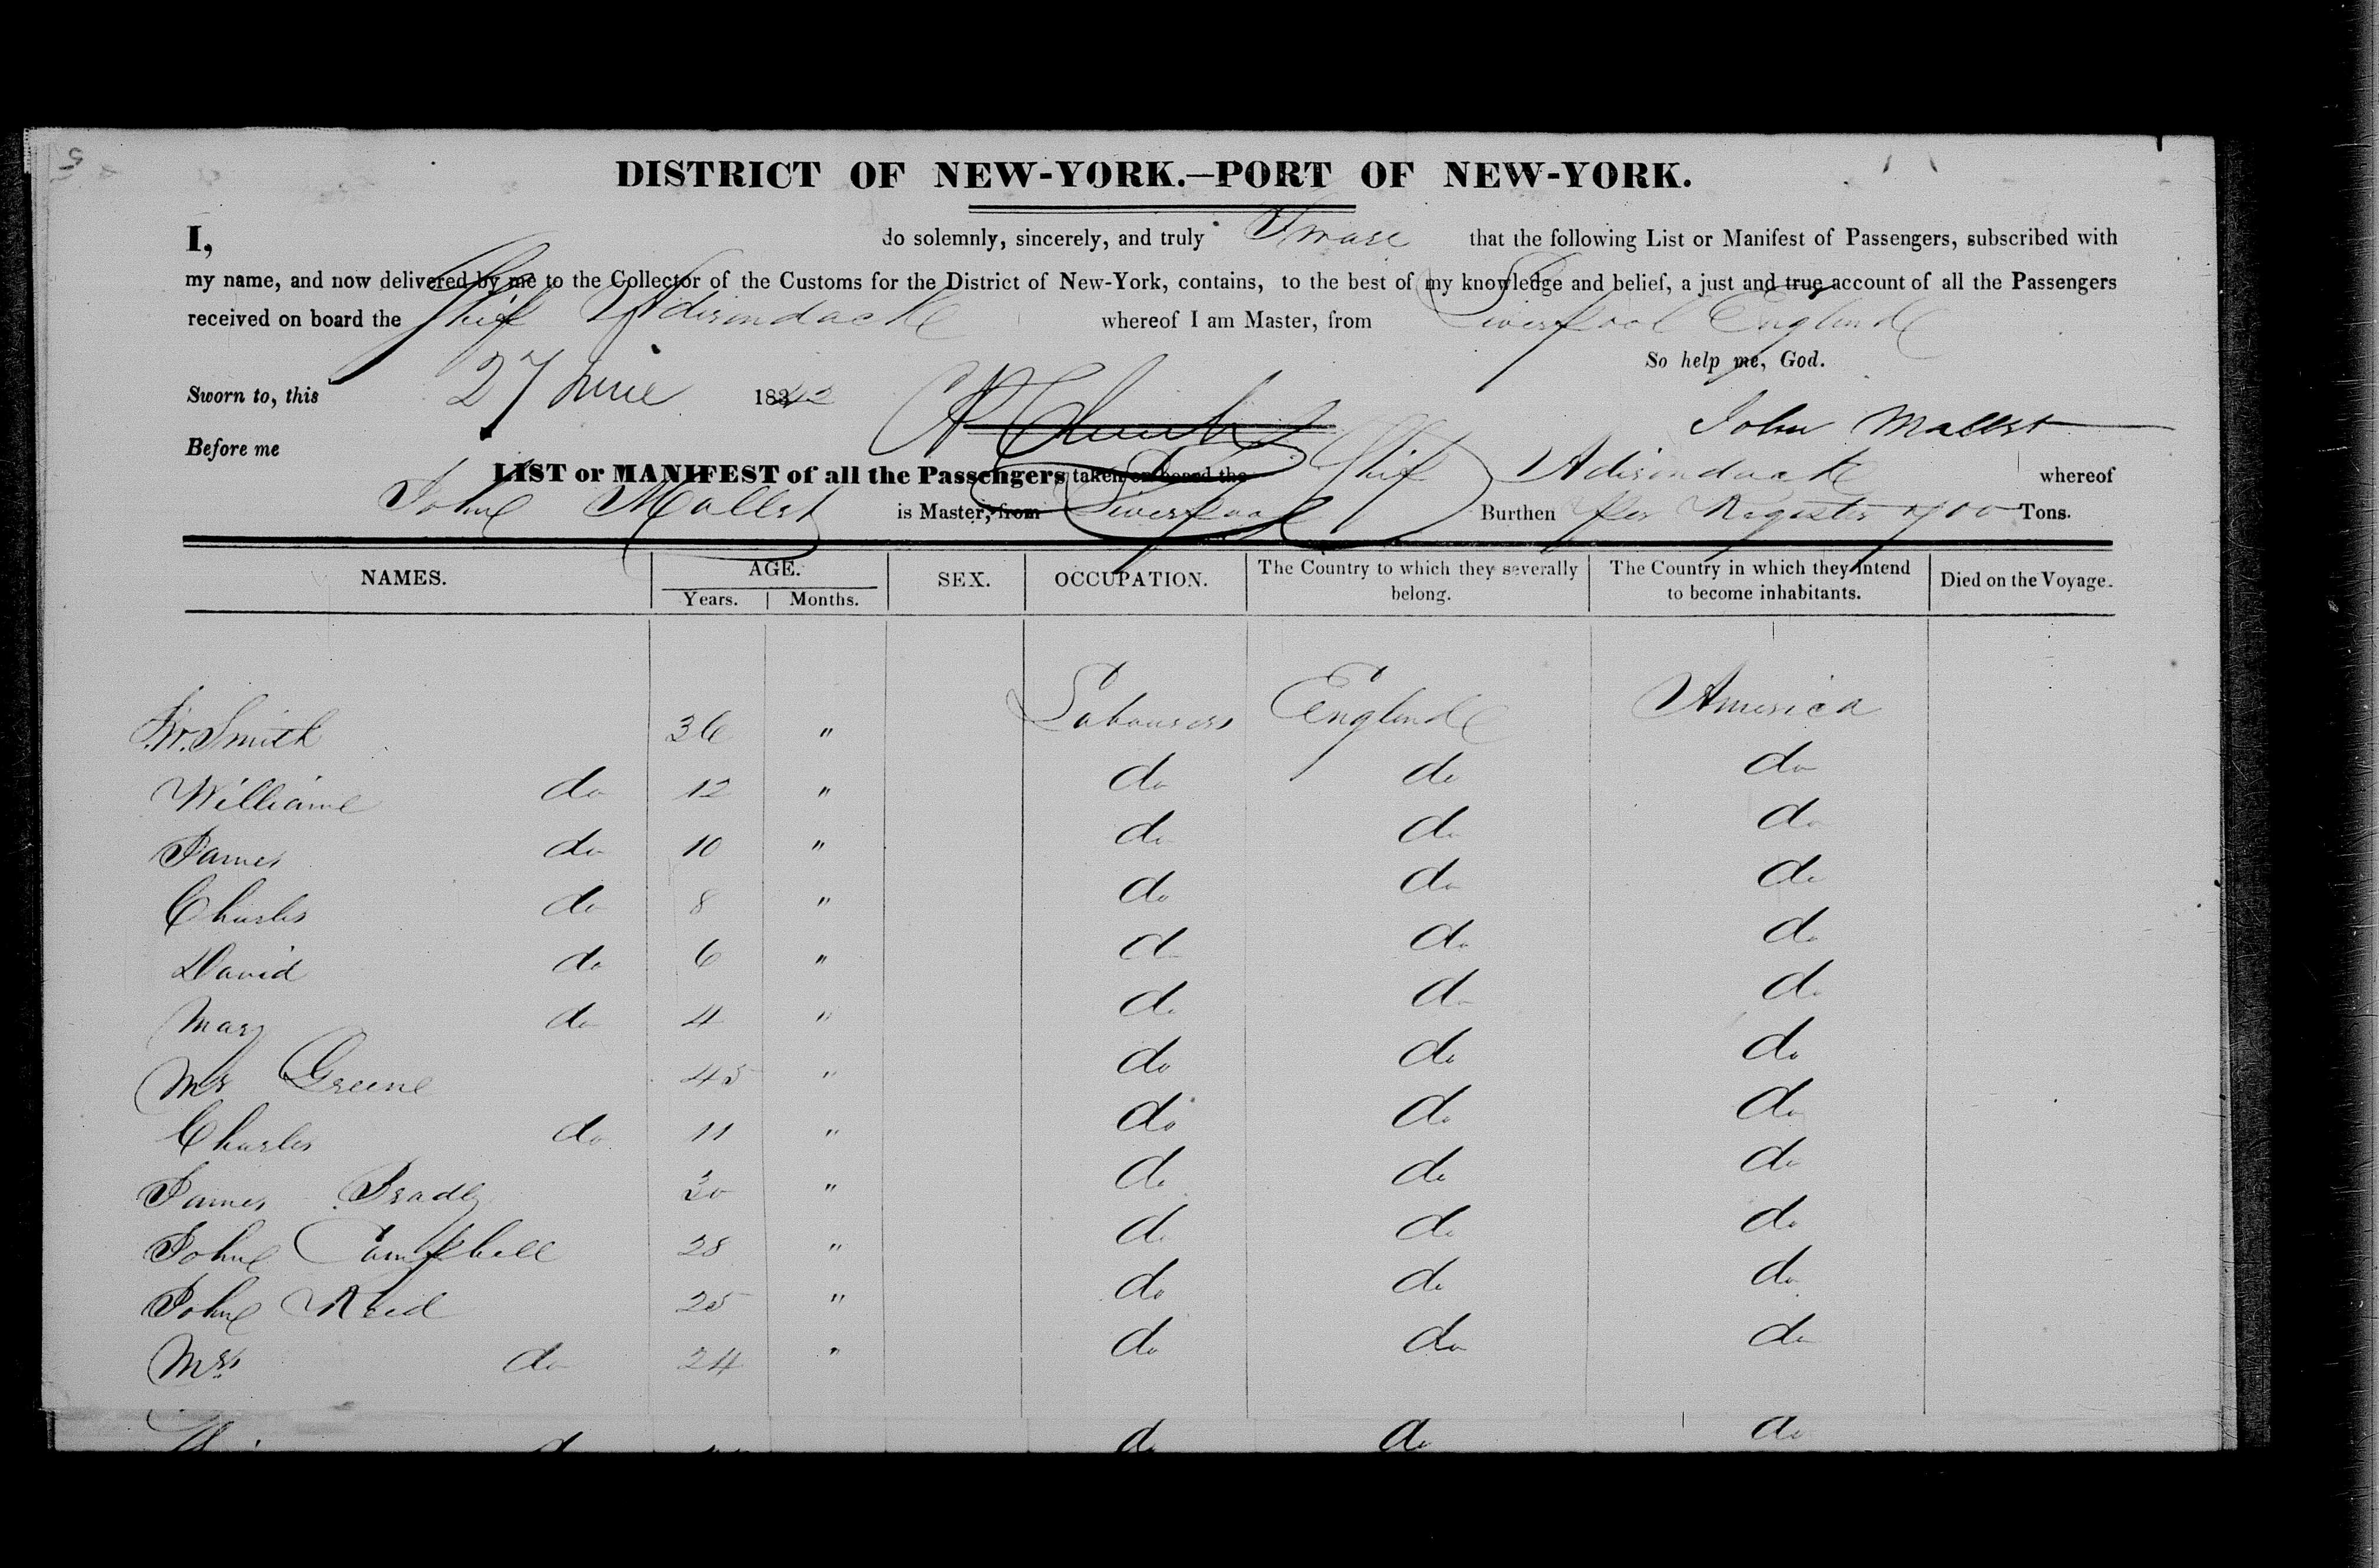 DISTRICT OF NEW-YORK.—PORT OF NEW-YORK.
I, do solemnly, sincerely, and truly Swase that the following List or Manifest of Passengers, subscribed with
my name, and now delivered by me to the Collector of the Customs for the District of New-York, contains, to the best of my knowledge and belief, a just and true account of all the Passengers
received on board the Ship Adirondack whereof I am Master, from Liverpool England
So help me, God.
Sworn to, this 27 June 1842
John Mallet
Before me
LIST or MANIFEST of all the Passengers taken on board the Ship Adirondack whereof
John Mallet is Master, from Liverpool Burthen per Register 700 Tons.
NAMES. AGE. SEX. OCCUPATION. The Country to which they severally belong. The Country in which they intend to become inhabitants. Died on the Voyage.
Years. Months.
Smith 36 " Labourers England America
William do 12 " do do do
James do 10 " do do do
Charles do 8 " do do do
David do 6 " do do do
Mary do 4 " do do do
Mr Greene 45 " do do do
Charles do 11 " do do do
James Brady 30 " do do do
John Campbell 28 " do do do
John Reid 25 " do do do
Mrs do 24 " do do do
do do do